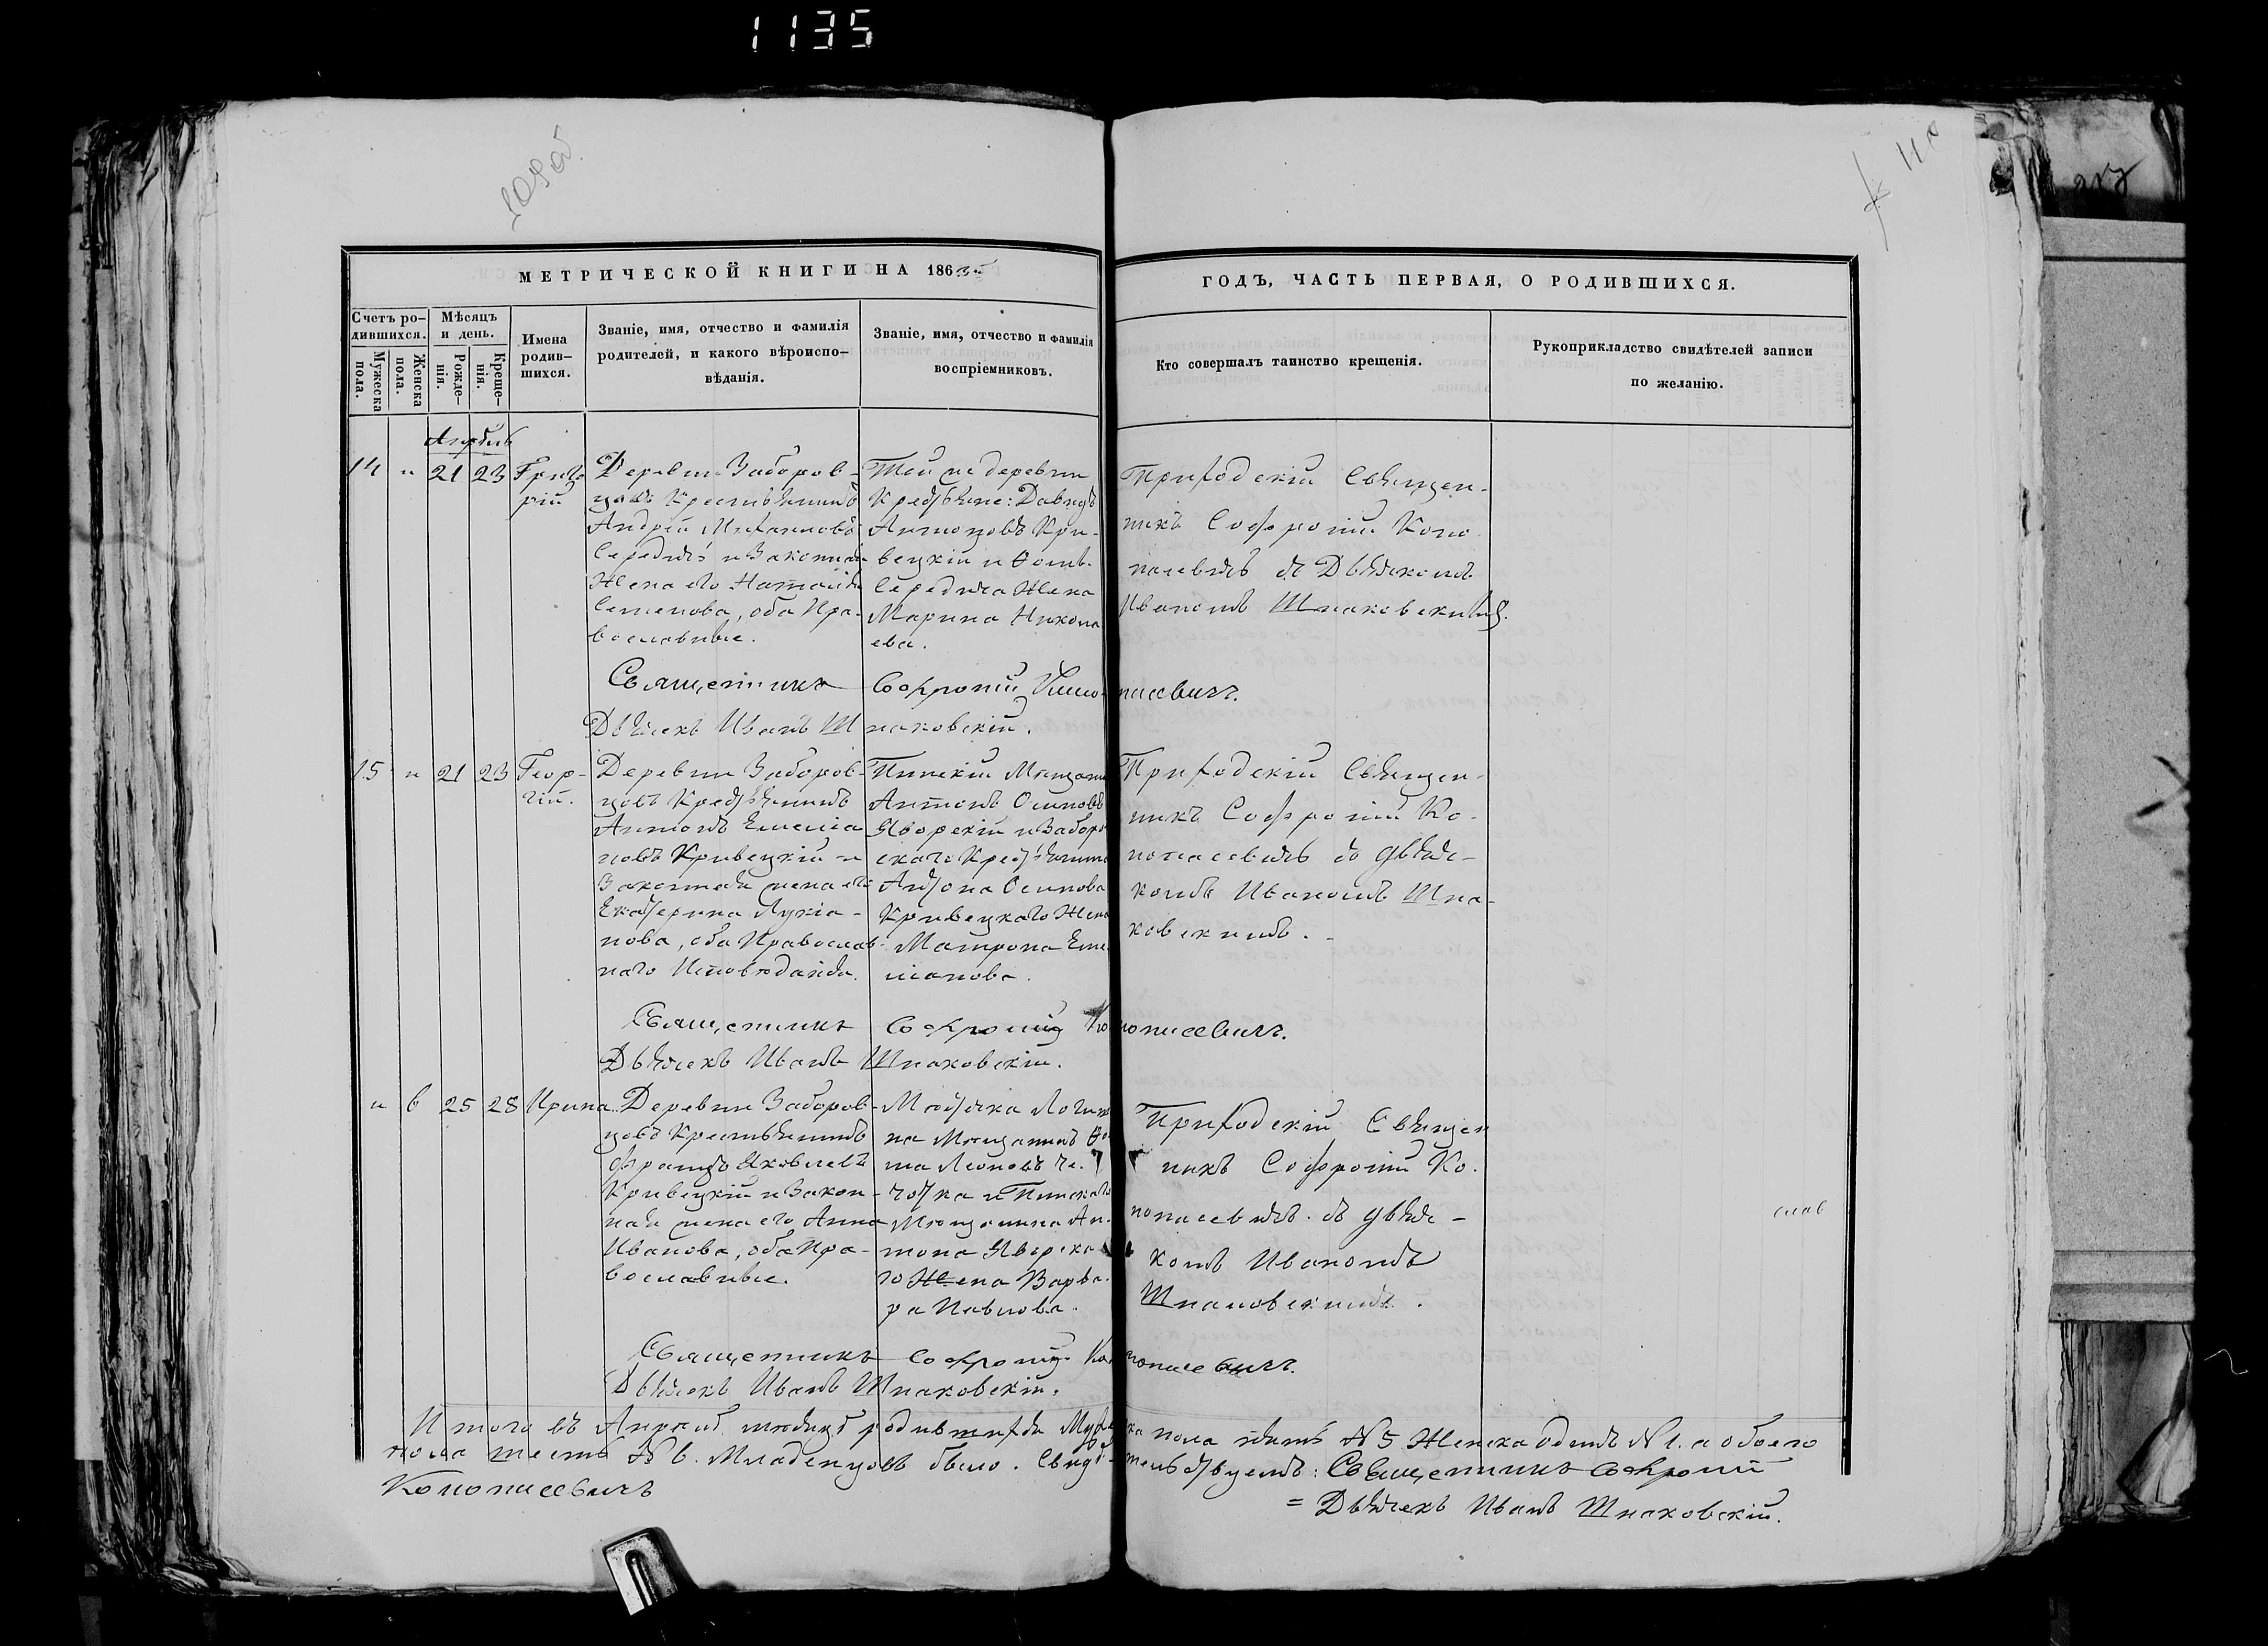 1135
109об.
110
МЕТРИЧЕСКОЙ КНИГИ НА 1865
ГОДЪ, ЧАСТЬ ПЕРВАЯ, О РОДИВШИХСЯ.
Счетъ ро-
дившихся.
Мужеска
пола.
Женска
пола.
Мѣсяцъ
и день.
Рожде-
нія.
Креще-
нія.
Имена
родив-
шихся.
Званіе, имя, отчество и фамилія
родителей, и какого вѣроиспо-
вѣданія.
Званіе, имя, отчество и фамилія
воспріемниковъ.
Кто совершалъ таинство крещенія.
Рукоприкладство свидѣтелей записи
по желанію.
Апрѣль
14 " 21 23
Григо
рій
Деревни Заборов-
цовъ Крестьянинъ
Андрей Михайловъ
Середичъ и Законная
Жена его Наталія
Семенова, оба Пра-
вославные.
Той же деревни
Крестьяне: Давидъ
Антоновъ Кри-
вецкій и Ѳомы
Середича Жена
Марина Никола
ева.
Приходскій Священ-
никъ Софроній Коно
пасевичъ съ Дьячкомъ
Иваномъ Шпаковскимъ.
Священникъ Софроній Коно-
пасевичъ.
Дьячекъ Иванъ Шпаковскій.
15 " 21 23
Геор-
гій.
Деревни Заборов-
цовъ Крестьянинъ
Антонъ Емелія
новъ Кривецкій и
Законная жена его
Екатерина Лукіа-
нова, оба Православ-
наго Исповѣданія.
Пинскій Мѣщани
Антонъ Осиповъ
Яворскій и Заборо
скаго Крестьянина
Антона Осипова
Кривецкаго Жена
Матрона Еме
ліанова.
Приходскій Священ-
никъ Софроній Ко-
нопасевичъ со дьяч-
комъ Иваномъ Шпа-
ковскимъ.
Священникъ Софроній Ко
нопасевичъ.
Дьячекъ Иванъ Шпаковскій.
" 6 25 28
Ирина
Деревни Заборов-
цовъ Крестьянинъ
Францъ Яковлевъ
Кривецкій и Закон-
ная жена его Анна
Иванова, оба Пра-
вославные.
Мѣстечка Логиши
на Мѣщанинъ Ѳо
ма Леоновъ
и Пинскаго
Мѣщанина Ан-
тона Яворска
го Жена Варва-
ра Павлова.
Приходскій Священ
никъ Софроній Ко-
нопасевичъ съ дьяч-
комъ Иваномъ
Шпаковскимъ.
Священникъ Софроній Ко
нопасевичъ.
Дьячекъ Иванъ Шпаковскій.
Итого въ Апрѣлѣ мѣсяцѣ родившихся Мужеска пола пять № 5 Женска одинъ № 1. а обоего
пола шесть № 6. Младенцовъ было. Свидѣтельствуемъ: Священникъ Софроній
Конопасевичъ
= Дьячекъ Иванъ Шпаковскій.